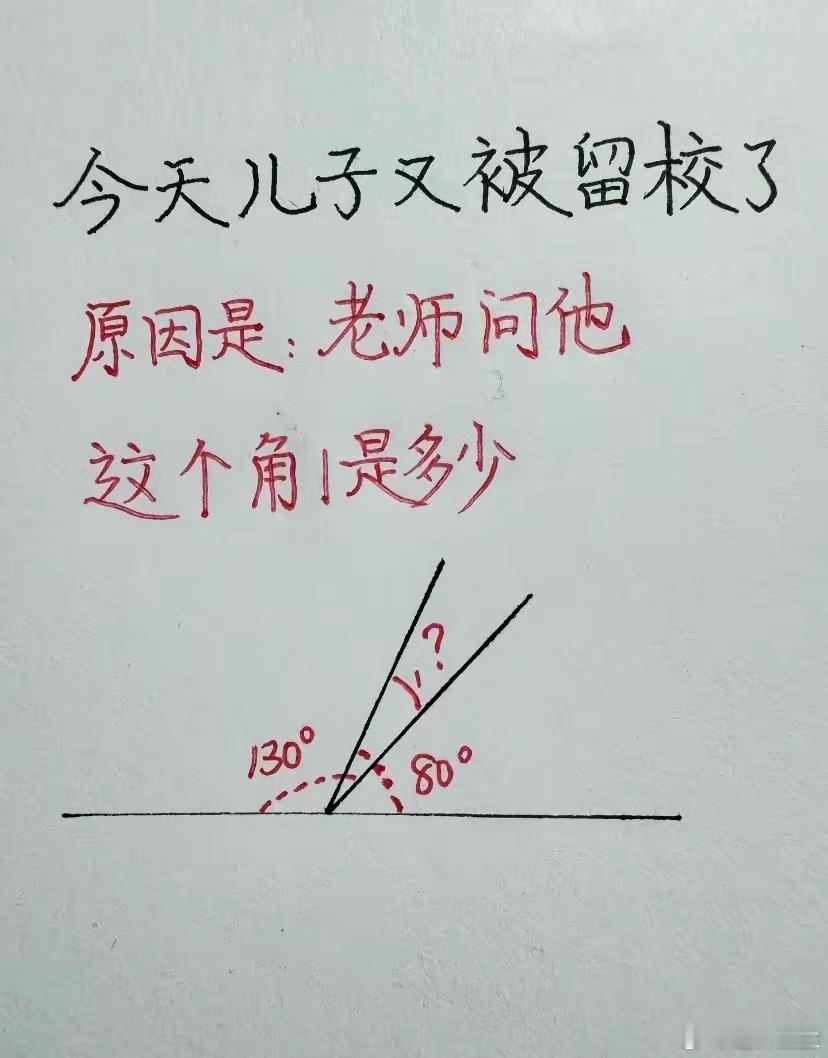 今天儿子又被留校了
原因是:老师问他
这个角1是多少
?
1
130°
80°